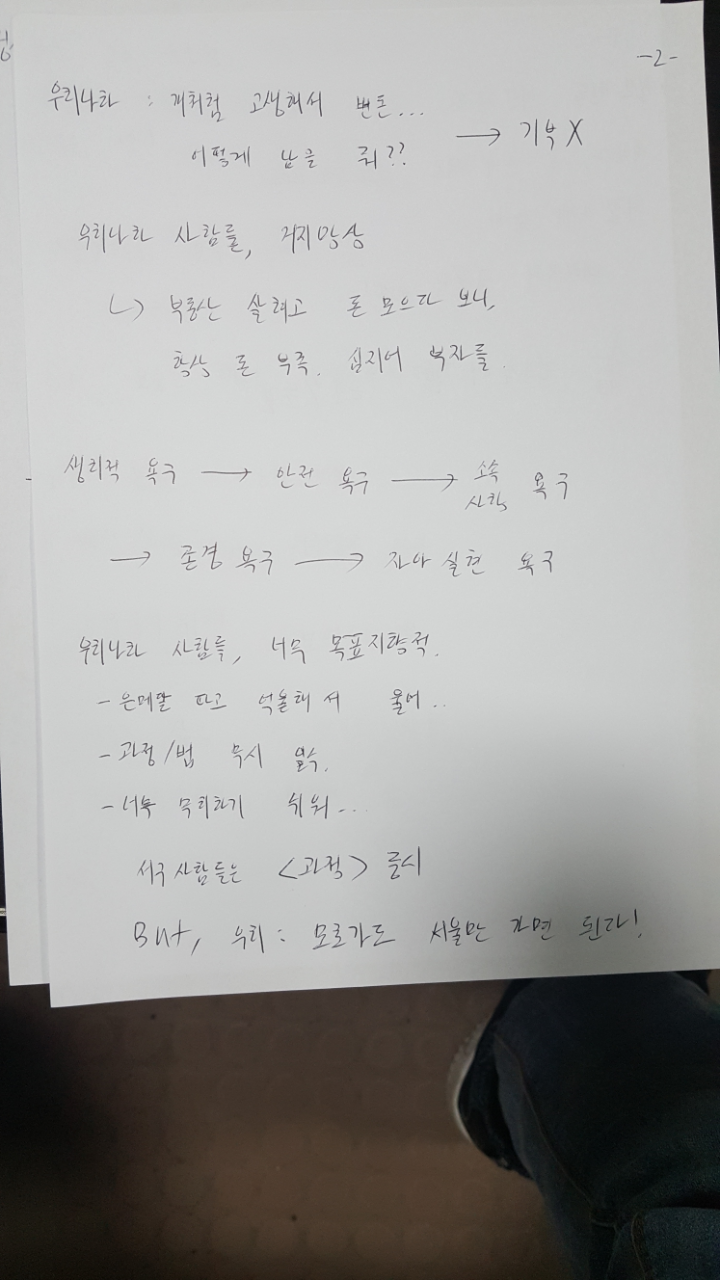 -2-
우리나라 : 개처럼 고생해서 번돈...
어떻게 남을 줘??
→ 기부 X
우리나라 사람들, 거지망상
↳ 부동산 살려고 돈 모으다 보니,
항상 돈 부족. 심지어 부자들.
생리적 욕구 → 안전 욕구 → 소속 사랑 욕구
→ 존경 욕구 → 자아 실현 욕구
우리나라 사람들, 너무 목표지향적.
- 은메달 따고 억울해서 울어..
- 과정/법 무시 일쑤.
- 너무 후회하기 쉬워...
서구 사람들은 <과정> 중시
But, 우리 : 모로가도 서울만 가면 된다!